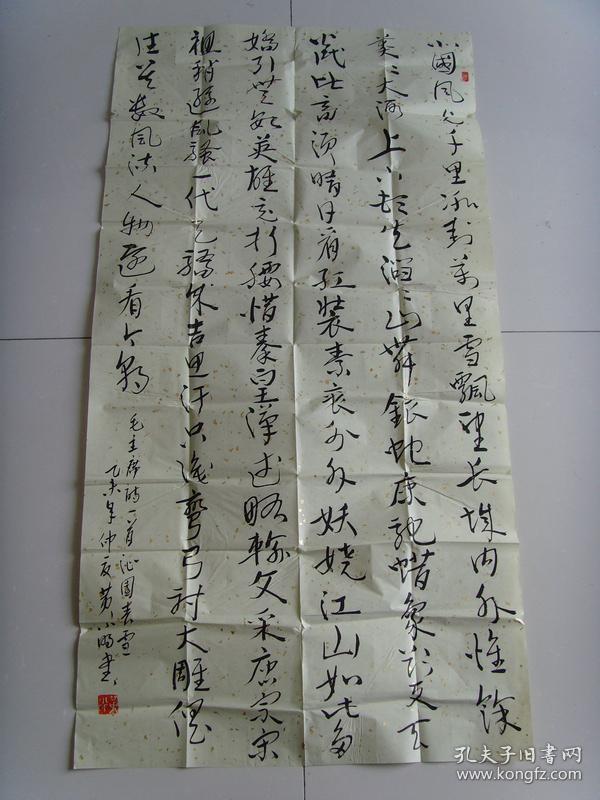 北國风光千里冰封万里雪飄望长城内外惟馀
莽〻大河上下顿失滔〻山舞銀蛇原驰蜡象欲与天
试比高须晴日看红装素裹分外妖娆江山如此多
娇引无数英雄竞折腰惜秦皇汉武略输文采唐宗宋
祖稍逊风骚一代天骄成吉思汗只识弯弓射大雕俱
往矣数风流人物还看今朝
毛主席诗一首沁园春雪
乙未年仲夏黄小明书
孔夫子旧书网
www.kongfz.com